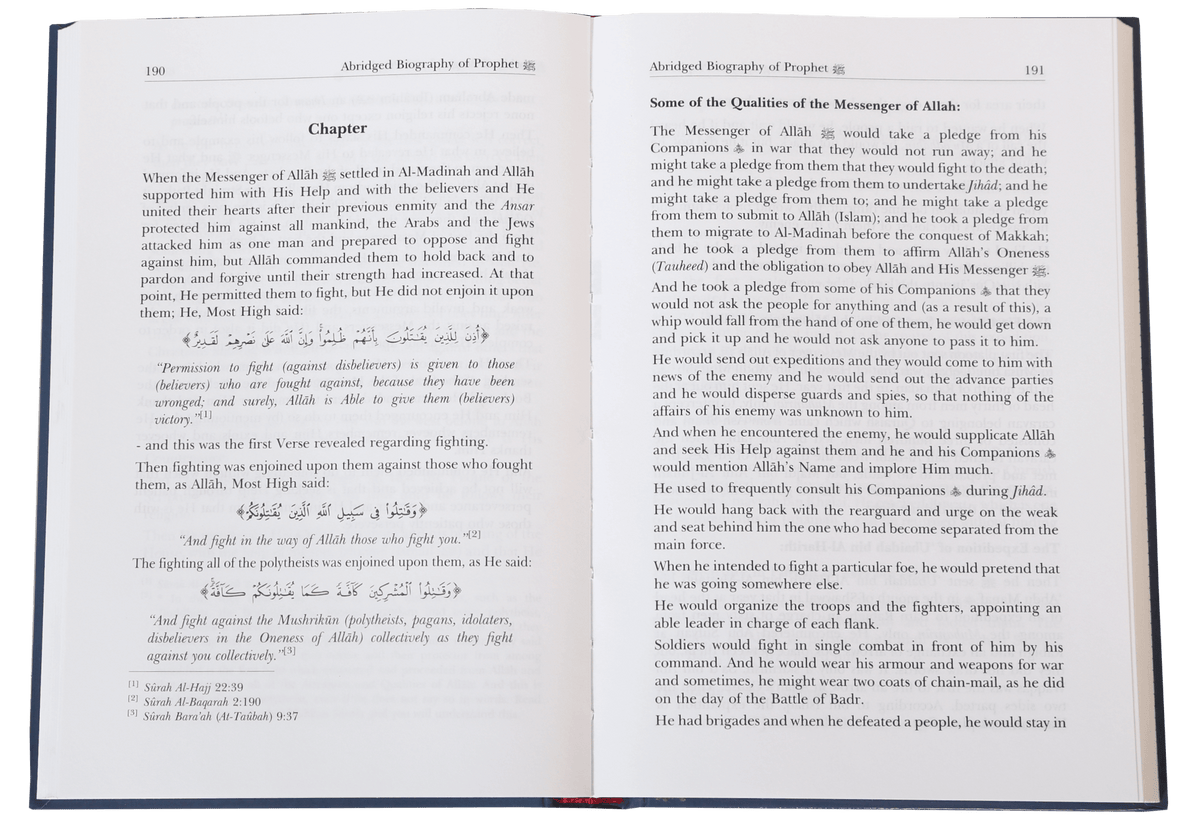 190
Abridged Biography of Prophet ﷺ
Chapter
When the Messenger of Allāh ﷺ settled in Al-Madinah and Allāh
supported him with His Help and with the believers and He
united their hearts after their previous enmity and the Ansar
protected him against all mankind, the Arabs and the Jews
attacked him as one man and prepared to oppose and fight
against him, but Allāh commanded them to hold back and to
pardon and forgive until their strength had increased. At that
point, He permitted them to fight, but He did not enjoin it upon
them; He, Most High said:
﴿أُذِنَ لِلَّذِينَ يُقَٰتَلُونَ بِأَنَّهُمْ ظُلِمُوا۟ وَإِنَّ ٱللَّهَ عَلَىٰ نَصْرِهِمْ لَقَدِيرٌ﴾
“Permission to fight (against disbelievers) is given to those
(believers) who are fought against, because they have been
wronged; and surely, Allāh is Able to give them (believers)
victory.”[1]
- and this was the first Verse revealed regarding fighting.
Then fighting was enjoined upon them against those who fought
them, as Allāh, Most High said:
﴿وَقَٰتِلُوا۟ فِى سَبِيلِ ٱللَّهِ ٱلَّذِينَ يُقَٰتِلُونَكُمْ﴾
“And fight in the way of Allāh those who fight you.”[2]
The fighting all of the polytheists was enjoined upon them, as He said:
﴿وَقَٰتِلُوا۟ ٱلْمُشْرِكِينَ كَآفَّةً كَمَا يُقَٰتِلُونَكُمْ كَآفَّةً﴾
“And fight against the Mushrikūn (polytheists, pagans, idolaters,
disbelievers in the Oneness of Allāh) collectively as they fight
against you collectively.”[3]
[1] Sūrah Al-Hajj 22:39
[2] Sūrah Al-Baqarah 2:190
[3] Sūrah Bara’ah (At-Taūbah) 9:37
Abridged Biography of Prophet ﷺ
191
Some of the Qualities of the Messenger of Allah:
The Messenger of Allāh ﷺ would take a pledge from his
Companions in war that they would not run away; and he
might take a pledge from them that they would fight to the death;
and he might take a pledge from them to undertake Jihâd; and he
might take a pledge from them to; and he might take a pledge
from them to submit to Allāh (Islam); and he took a pledge from
them to migrate to Al-Madinah before the conquest of Makkah;
and he took a pledge from them to affirm Allāh’s Oneness
(Tauheed) and the obligation to obey Allāh and His Messenger ﷺ.
And he took a pledge from some of his Companions that they
would not ask the people for anything and (as a result of this), a
whip would fall from the hand of one of them, he would get down
and pick it up and he would not ask anyone to pass it to him.
He would send out expeditions and they would come to him with
news of the enemy and he would send out the advance parties
and he would disperse guards and spies, so that nothing of the
affairs of his enemy was unknown to him.
And when he encountered the enemy, he would supplicate Allāh
and seek His Help against them and he and his Companions
would mention Allāh’s Name and implore Him much.
He used to frequently consult his Companions during Jihâd.
He would hang back with the rearguard and urge on the weak
and seat behind him the one who had become separated from the
main force.
When he intended to fight a particular foe, he would pretend that
he was going somewhere else.
He would organize the troops and the fighters, appointing an
able leader in charge of each flank.
Soldiers would fight in single combat in front of him by his
command. And he would wear his armour and weapons for war
and sometimes, he might wear two coats of chain-mail, as he did
on the day of the Battle of Badr.
He had brigades and when he defeated a people, he would stay in